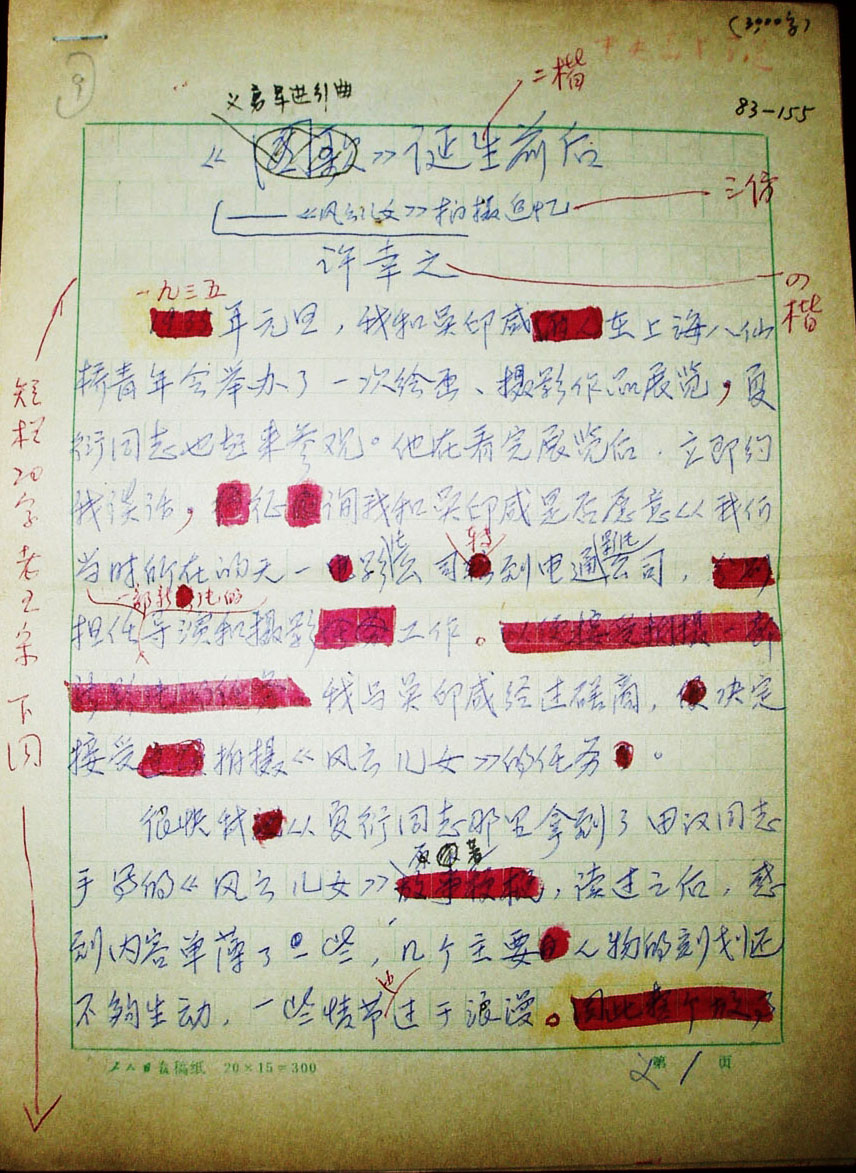 (3000字)
9
83-155
二楷
义勇军进行曲
《国歌》诞生前后
——《风云儿女》拍摄回忆
三仿
许幸之
四楷
一九三五
年元旦，我和吴印咸在上海八仙
桥青年会举办了一次绘画、摄影作品展览，夏
衍同志也赶来参观。他在看完展览后，立即约
我谈话，征询我和吴印咸是否愿意从我们
当时所在的天一影公司转到电通影片公司，
一部新的
担任导演和摄影工作。
我与吴印咸经过磋商，决定
接受拍摄《风云儿女》的任务。
很快我从夏衍同志那里拿到了田汉同志
原著
手写的《风云儿女》，读过之后，感
到内容单薄了一些，几个主要人物的刻划还
不够生动，一些情节也过于浪漫。
短栏20字老五宋下同
人民日报稿纸 20×15=300
第 1 页